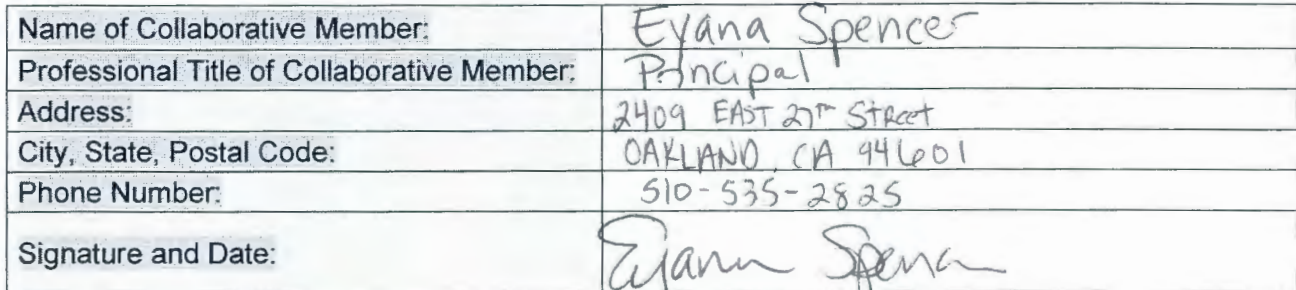 Name of Collaborative Member: Eyana Spencer
Professional Title of Collaborative Member: Principal
Address: 2409 EAST 27TH Street
City, State, Postal Code: OAKLAND, CA 94601
Phone Number: 510-535-2825
Signature and Date: Eyana Spencer